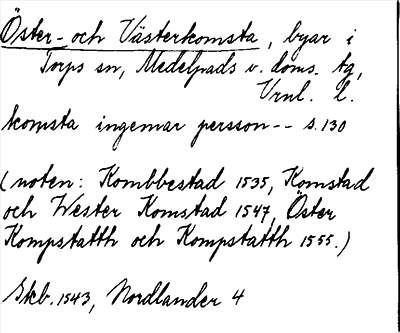 Öster- och Västerkomsta, byar i
Torps sn, Medelpads v. doms. tg,
Vrnl. l.
komsta ingemar persson-- s.130
(noten: Kombbestad 1535, Komstad
och Wester Komstad 1547, Öster
Kompstatth och Kompstatth 1555.)
Skb. 1543, Nordlander 4